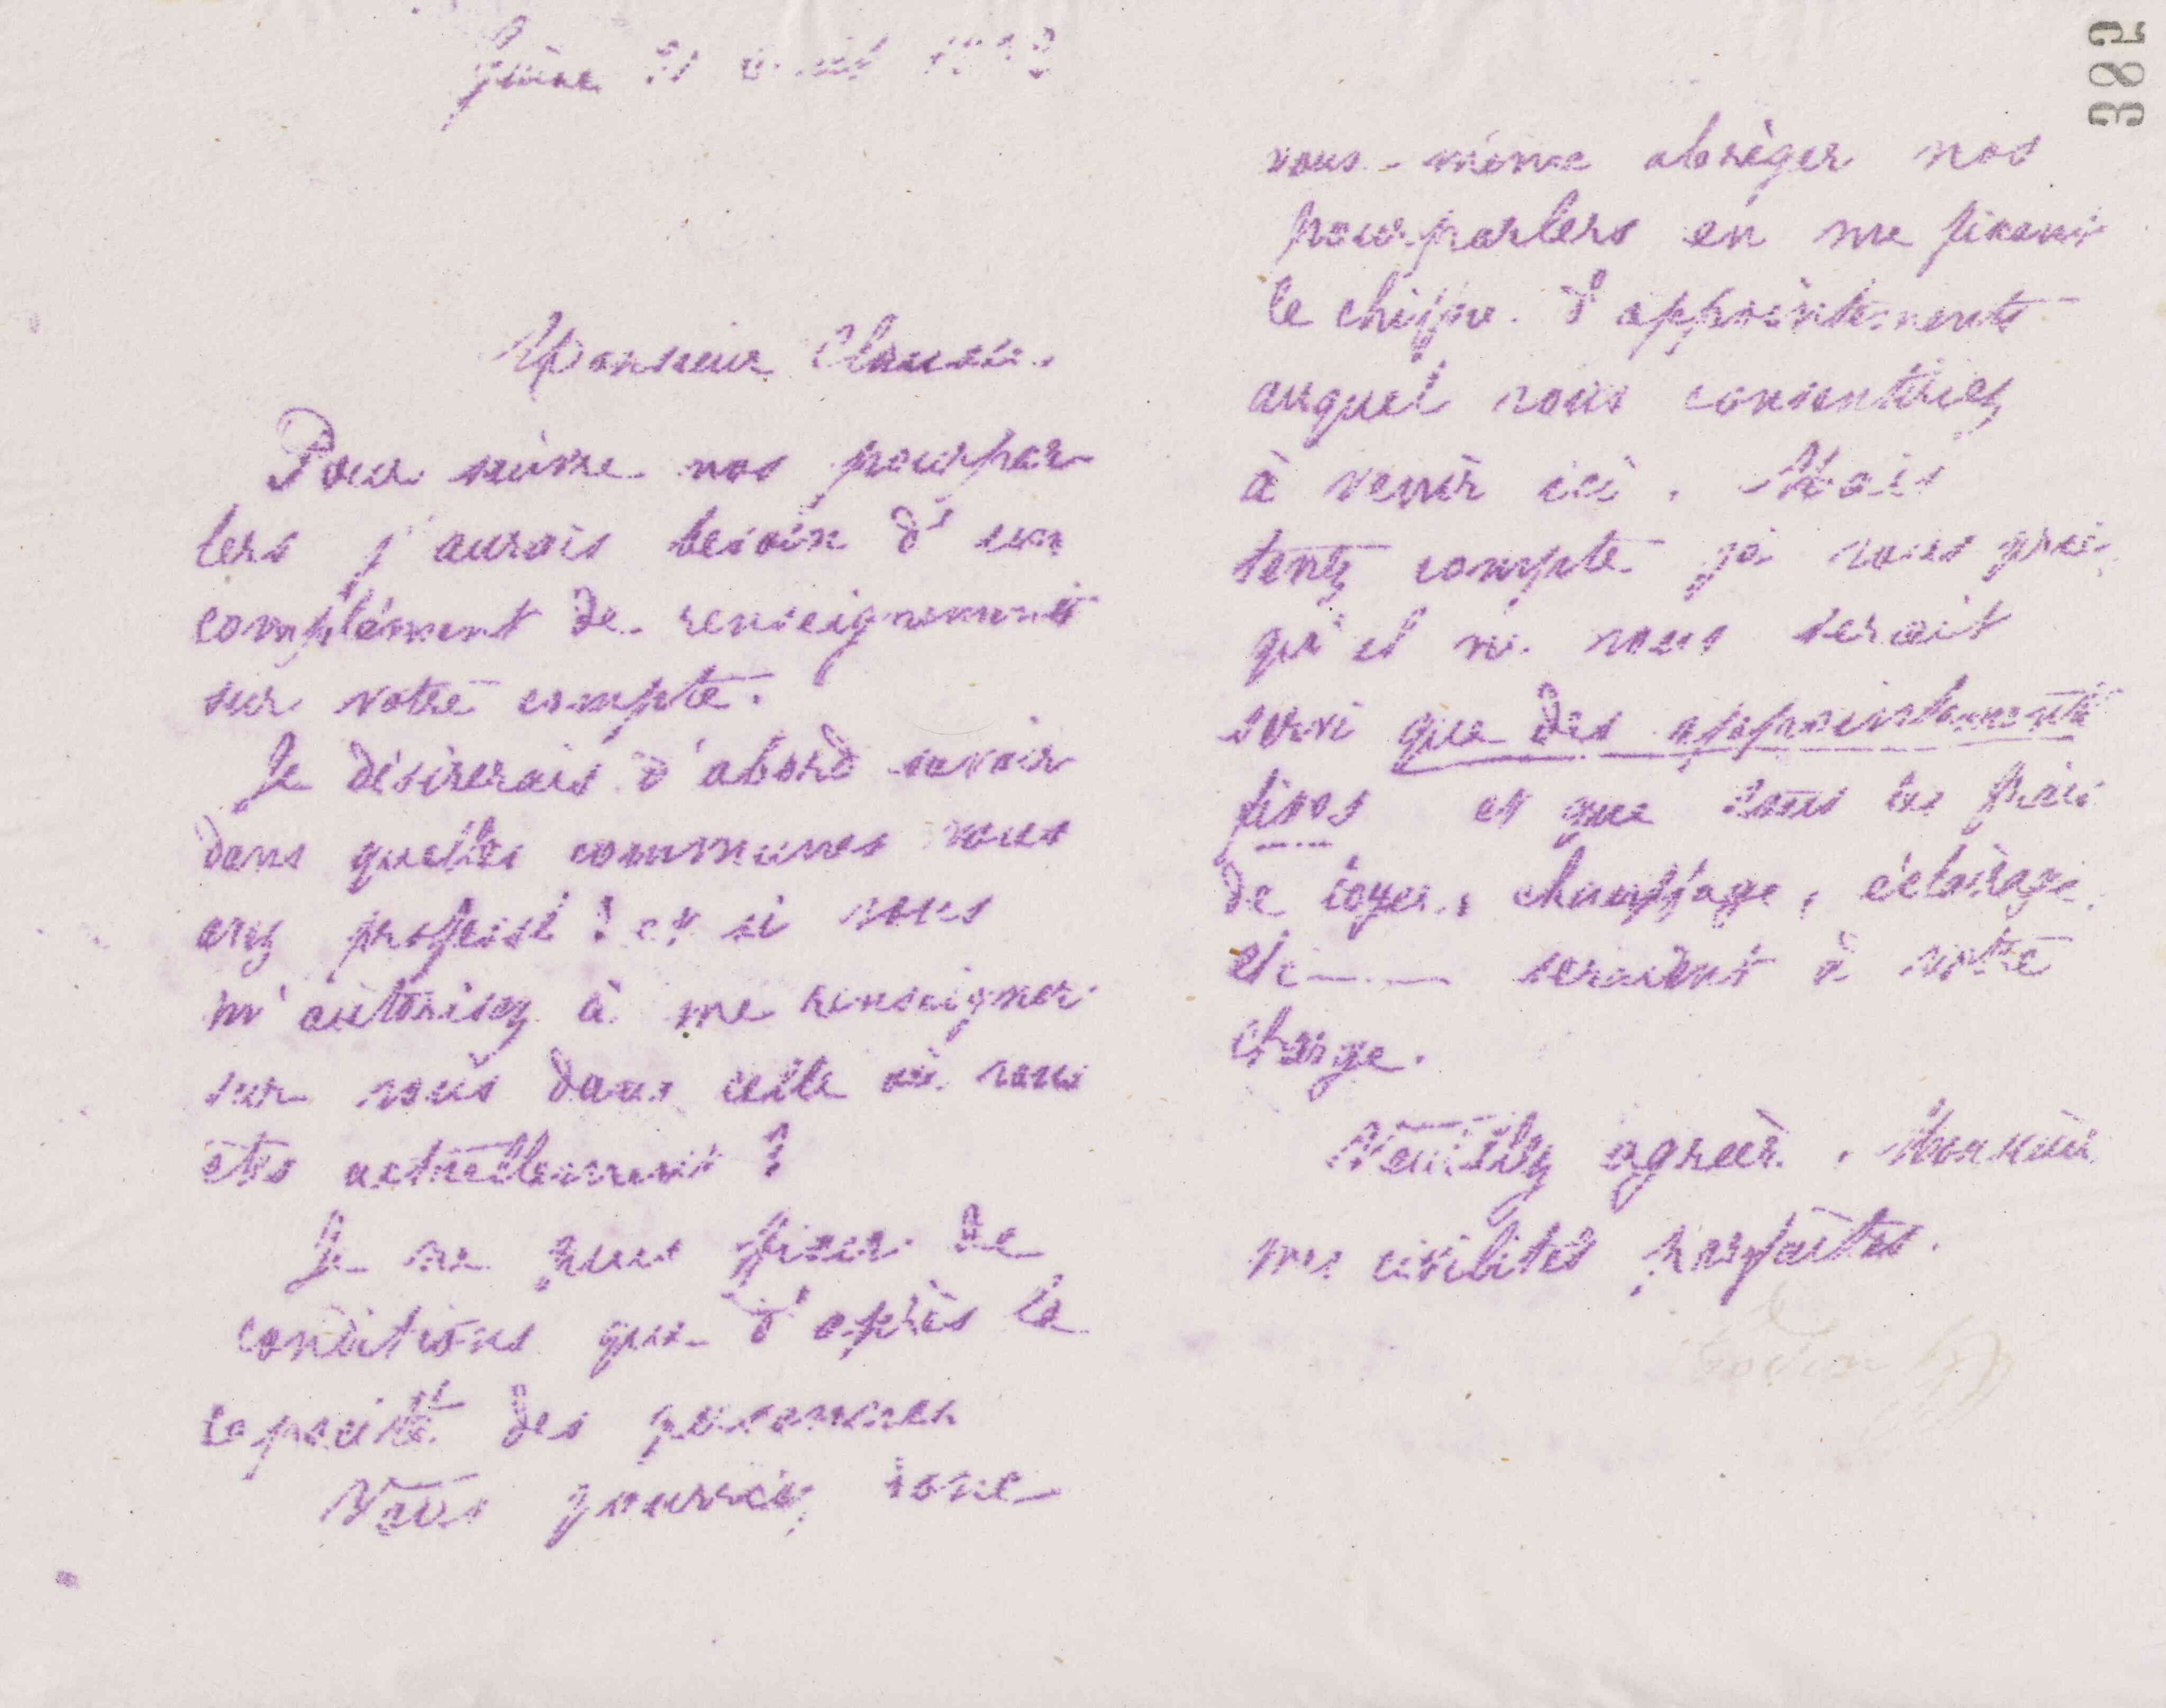 382
Guise
Monsieur
Pour suivre nos pourpar-
lers j'aurais besoin d'un
complément de renseignements
sur votre compte.
Je désirerais d'abord savoir
dans quelles communes vous
avez professé ? et si vous
m'autorisez à me renseigner
sur vous dans celle où vous
êtes actuellement ?
Je ne puis fixer de
conditions que d'après la
capacité des personnes
Vous pourriez donc
vous-même abréger nos
pourparlers en me fixant
le chiffre d'appointements
auquel vous consentiriez
à venir ici. Mais
tenez compte je vous prie,
qu'il ne vous serait
servi que des appointements
fixes et que tous les frais
de loyer, chauffage, éclairage
etc---- seraient à votre
charge.
Veuillez agréer, Monsieur
mes civilités parfaites.
Godin